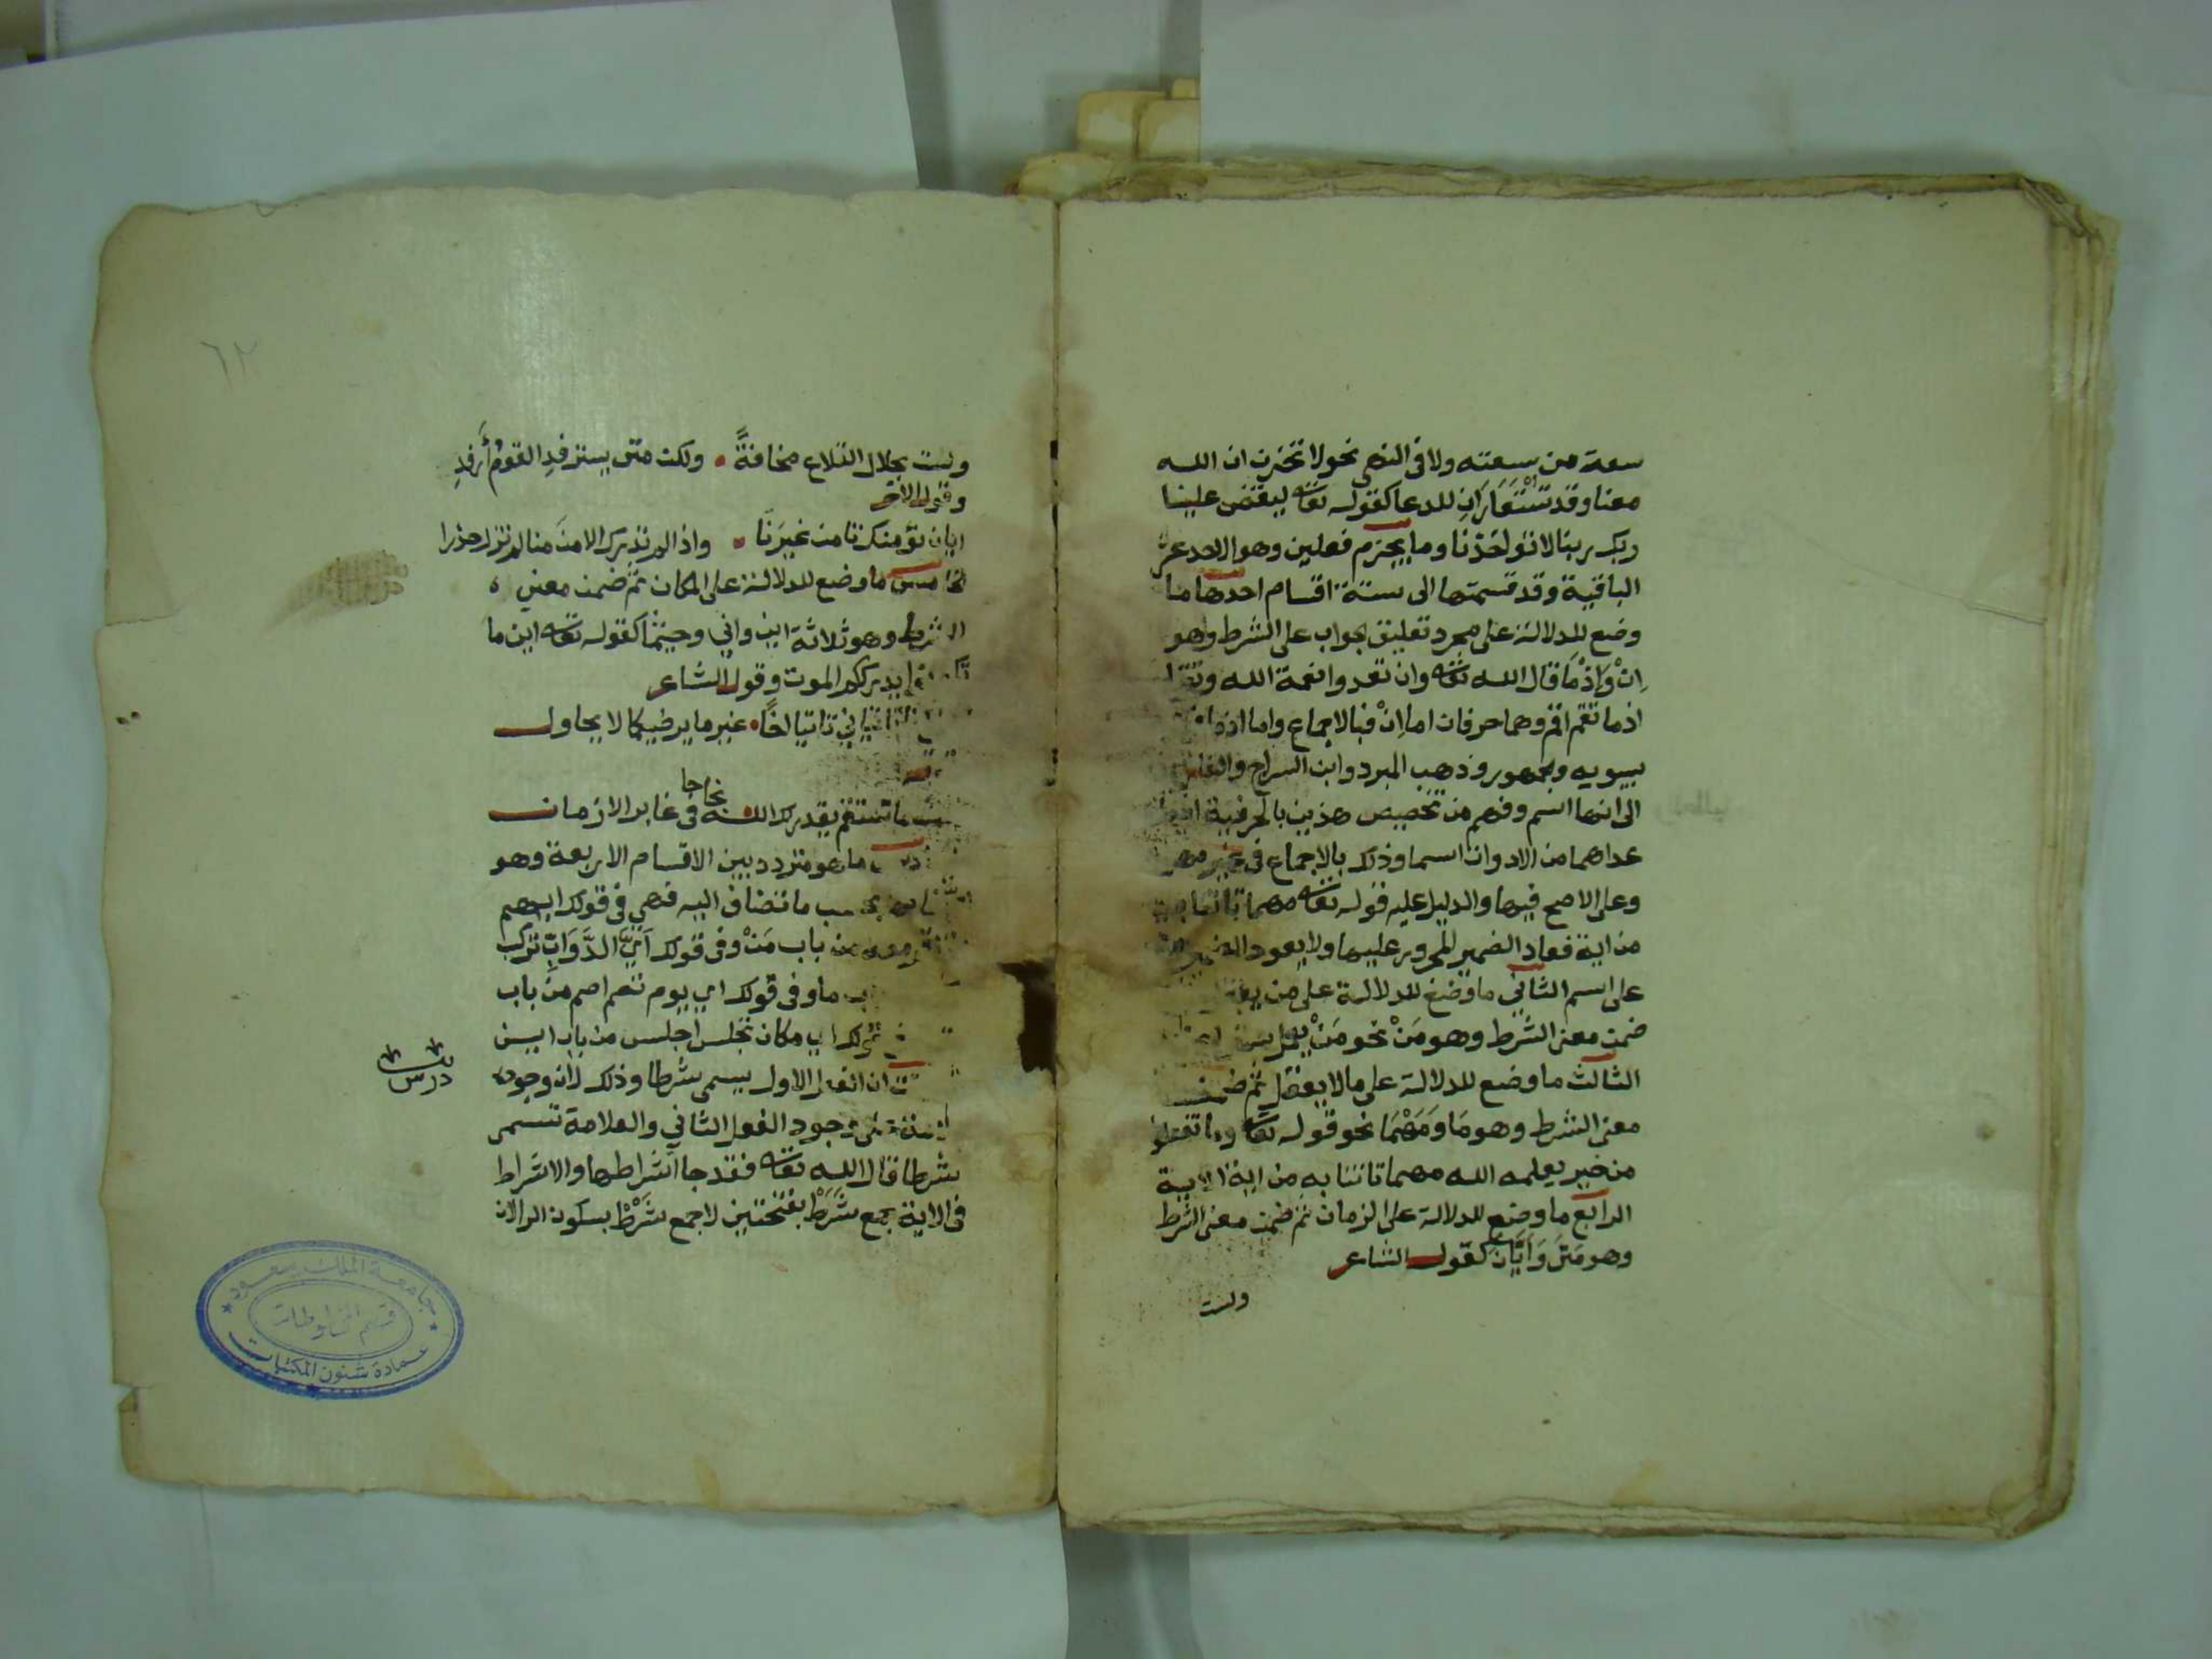 سعة من سعته ولا في النهي نحو لا تحزن ان الله
معنا وقد تستعاران للدعا كقوله تعالى ليقض علينا
ربك ربنا لا تواخذنا وما يجزم فعلين وهو الاحد عشر
الباقية وقد قسمتها الى ستة اقسام احدها ما
وضع للدلالة على مجرد تعليق الجواب على الشرط وهو
اِنْ وَاِذْمَا قال الله تعالى وان تعدوا نعمة الله وتقول
اذما تقم اقم وهما حرفان اما اِنْ فبالاجماع واما اذما
سيبويه والجمهور وذهب المبرد وابن السراج والفارسي
الى انها اسم وفهم من تخصيص هذين بالحرفية ان ما
عداهما من الادوات اسما وذلك بالاجماع في غير مهما
وعلى الاصح فيها والدليل عليه قوله تعالى مهما تاتنا به
من اية فعاد الضمير المجرور عليها ولا يعود الضمير الا
على اسم الثاني ما وضع للدلالة على من يعقل
ضمن معنى الشرط وهو مَنْ نحو مَنْ يعمل
الثالث ما وضع للدلالة على ما لا يعقل ثم ضمن
معنى الشرط وهو مَا وَمَهْمَا نحو قوله تعالى وما تفعلوا
من خير يعلمه الله مهما تاتنا به من اية الاية
الرابع ما وضع للدلالة على الزمان ثم ضمن معنى الشرط
وهو مَتَى وَاَيَّانَ كقول الشاعر
ولست
٦٢
ولست بحلال التلاع مخافةً • ولكن متى يسترفدِ القومُ أَرفدِ
وقول الاخر
ايان نؤمنك تامن غيرَنا • واذا لم تدرك الامنَ منا لم تزل حذرا
الخامس ما وضع للدلالة على المكان ثم ضمن معنى
الشرط وهو ثلاثة اين واني وحيثما كقوله تعالى اين ما
تكونوا يدرككم الموت وقول الشاعر
تاتياني تاتيا اخًا • غير ما يرضيكما لا يحاول
تستقم يقدر لك الله نجاحا في غابر الازمان
ما هو متردد بين الاقسام الاربعة وهو
بحسب ما تضاف اليه فهي في قولك ايهم
من باب مَنْ وفي قولك اَيَّ الدَّوَابِّ تركب
ما وفي قولك اي يوم تصم اصم من باب
قولك اي مكان تجلس اجلس من باب اين
درس
ان الفعل الاول يسمى شرطا وذلك لان وجوده
على وجود الفعل الثاني والعلامة تسمى
شرطا قال الله تعالى فقد جا اشراطها والاشراط
في الاية جمع شَرَطْ بفتحتين لا جمع شَرْطْ بسكون الرا لان
جامعة الملك سعود
قسم المخطوطات
عمادة شئون المكتبات